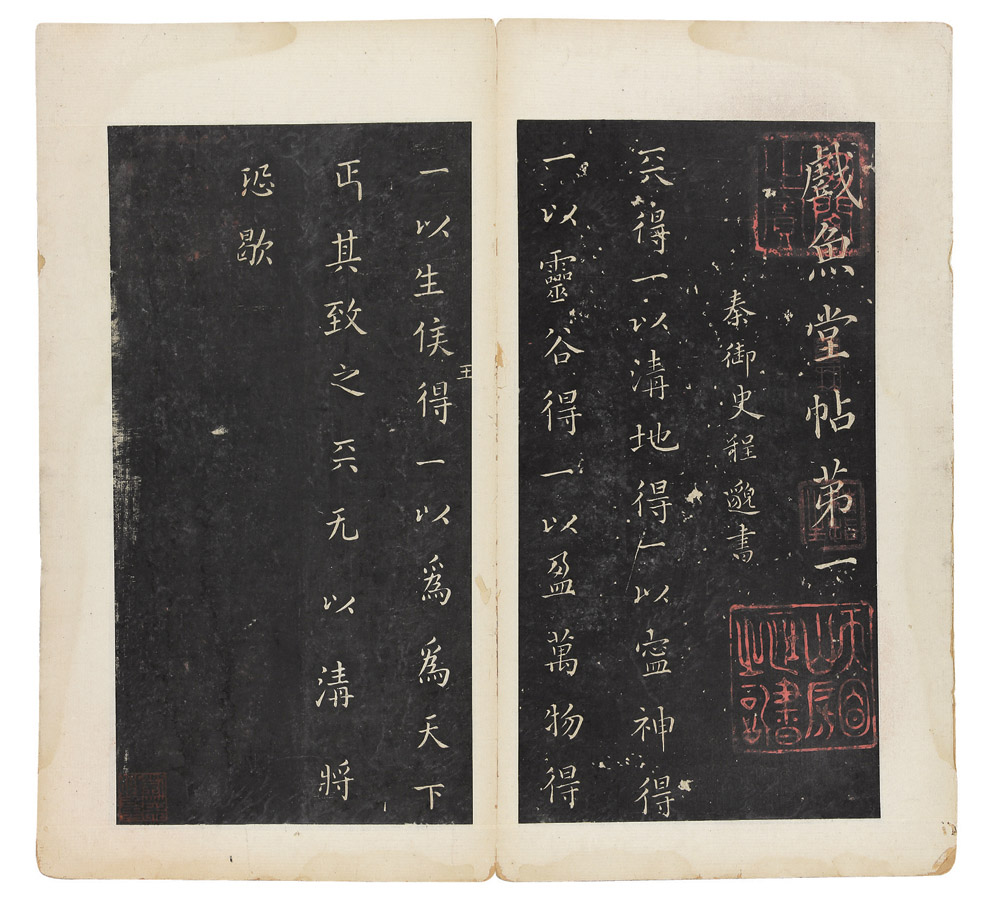 戲魚堂帖苐一
秦御史程邈書
天得一以清地得一以寍神得
一以靈谷得一以盈萬物得
一以生侯王得一以爲爲天下
正其致之天无以清將
恐歇